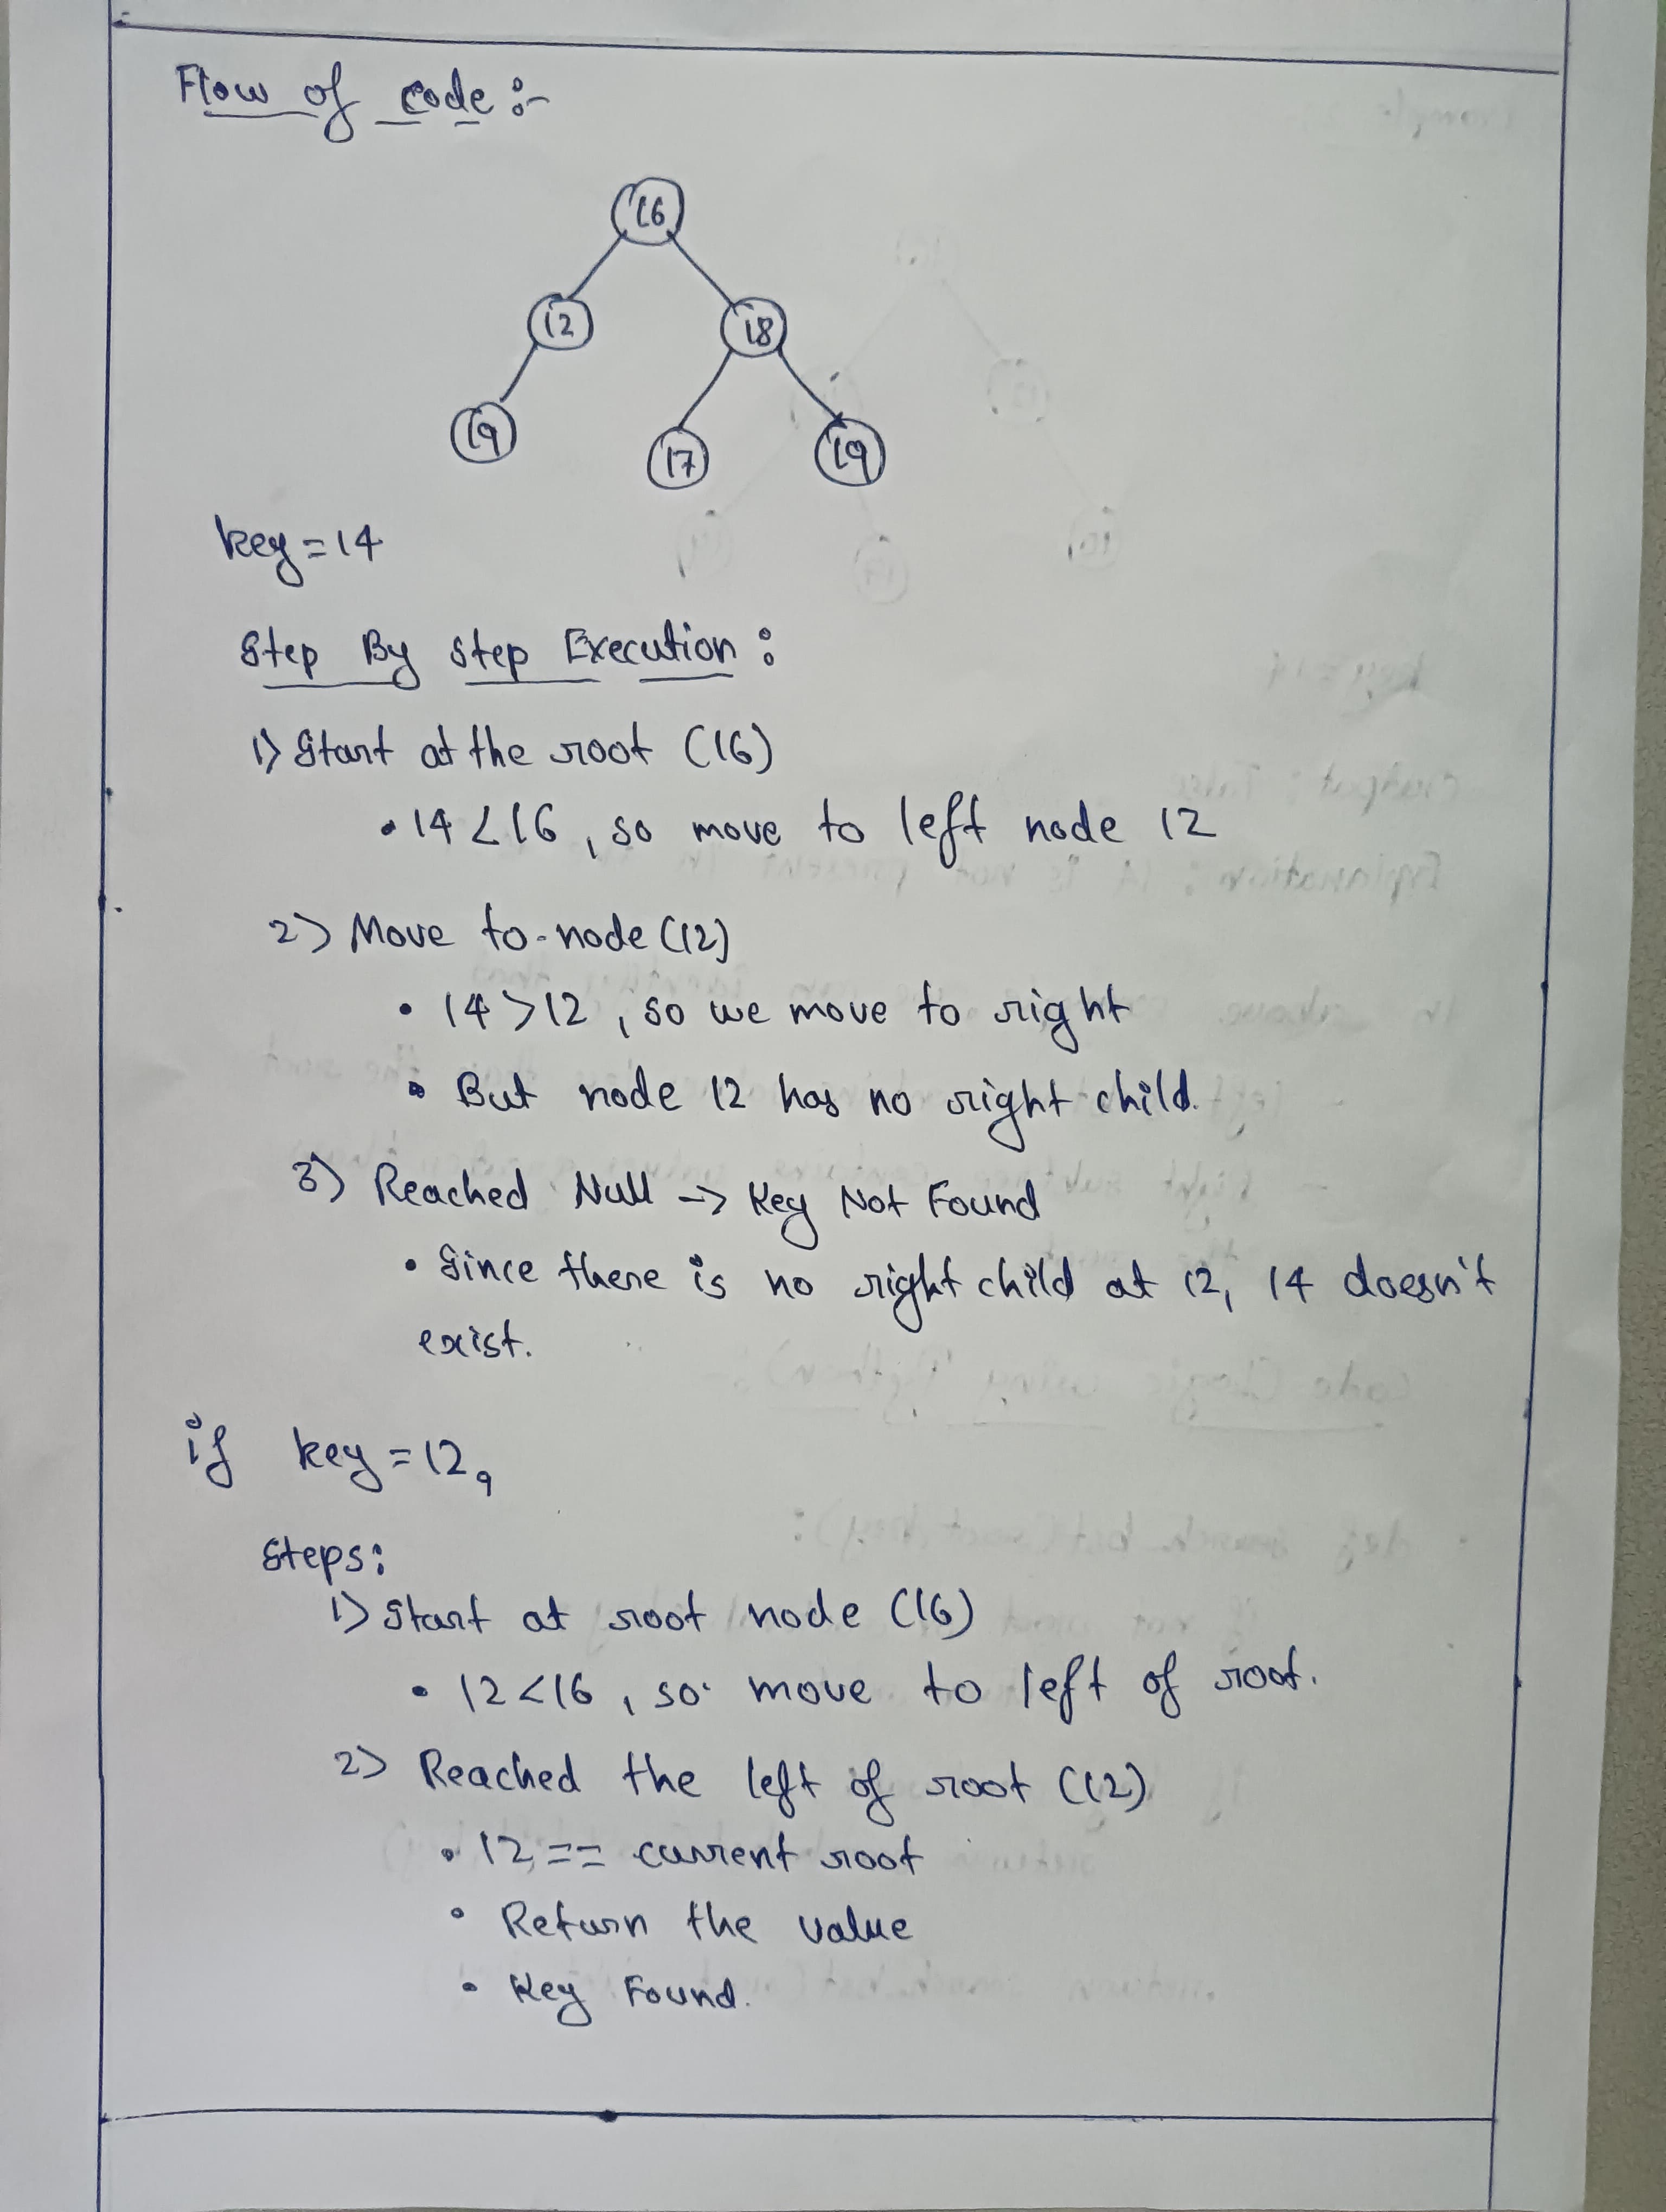 Flow of code :-
16
12 18
19 17 19
key = 14
Step By step Execution :
1) Start at the root (16)
• 14 < 16, so move to left node 12
2) Move to node (12)
• 14 > 12, so we move to right
• But node 12 has no right child.
3) Reached Null -> Key Not Found
• Since there is no right child at 12, 14 doesn't
exist.
if key = 12,
Steps:
1) Start at root node (16)
• 12 < 16, so move to left of root.
2) Reached the left of root (12)
• 12 == current root
• Return the value
• Key Found.